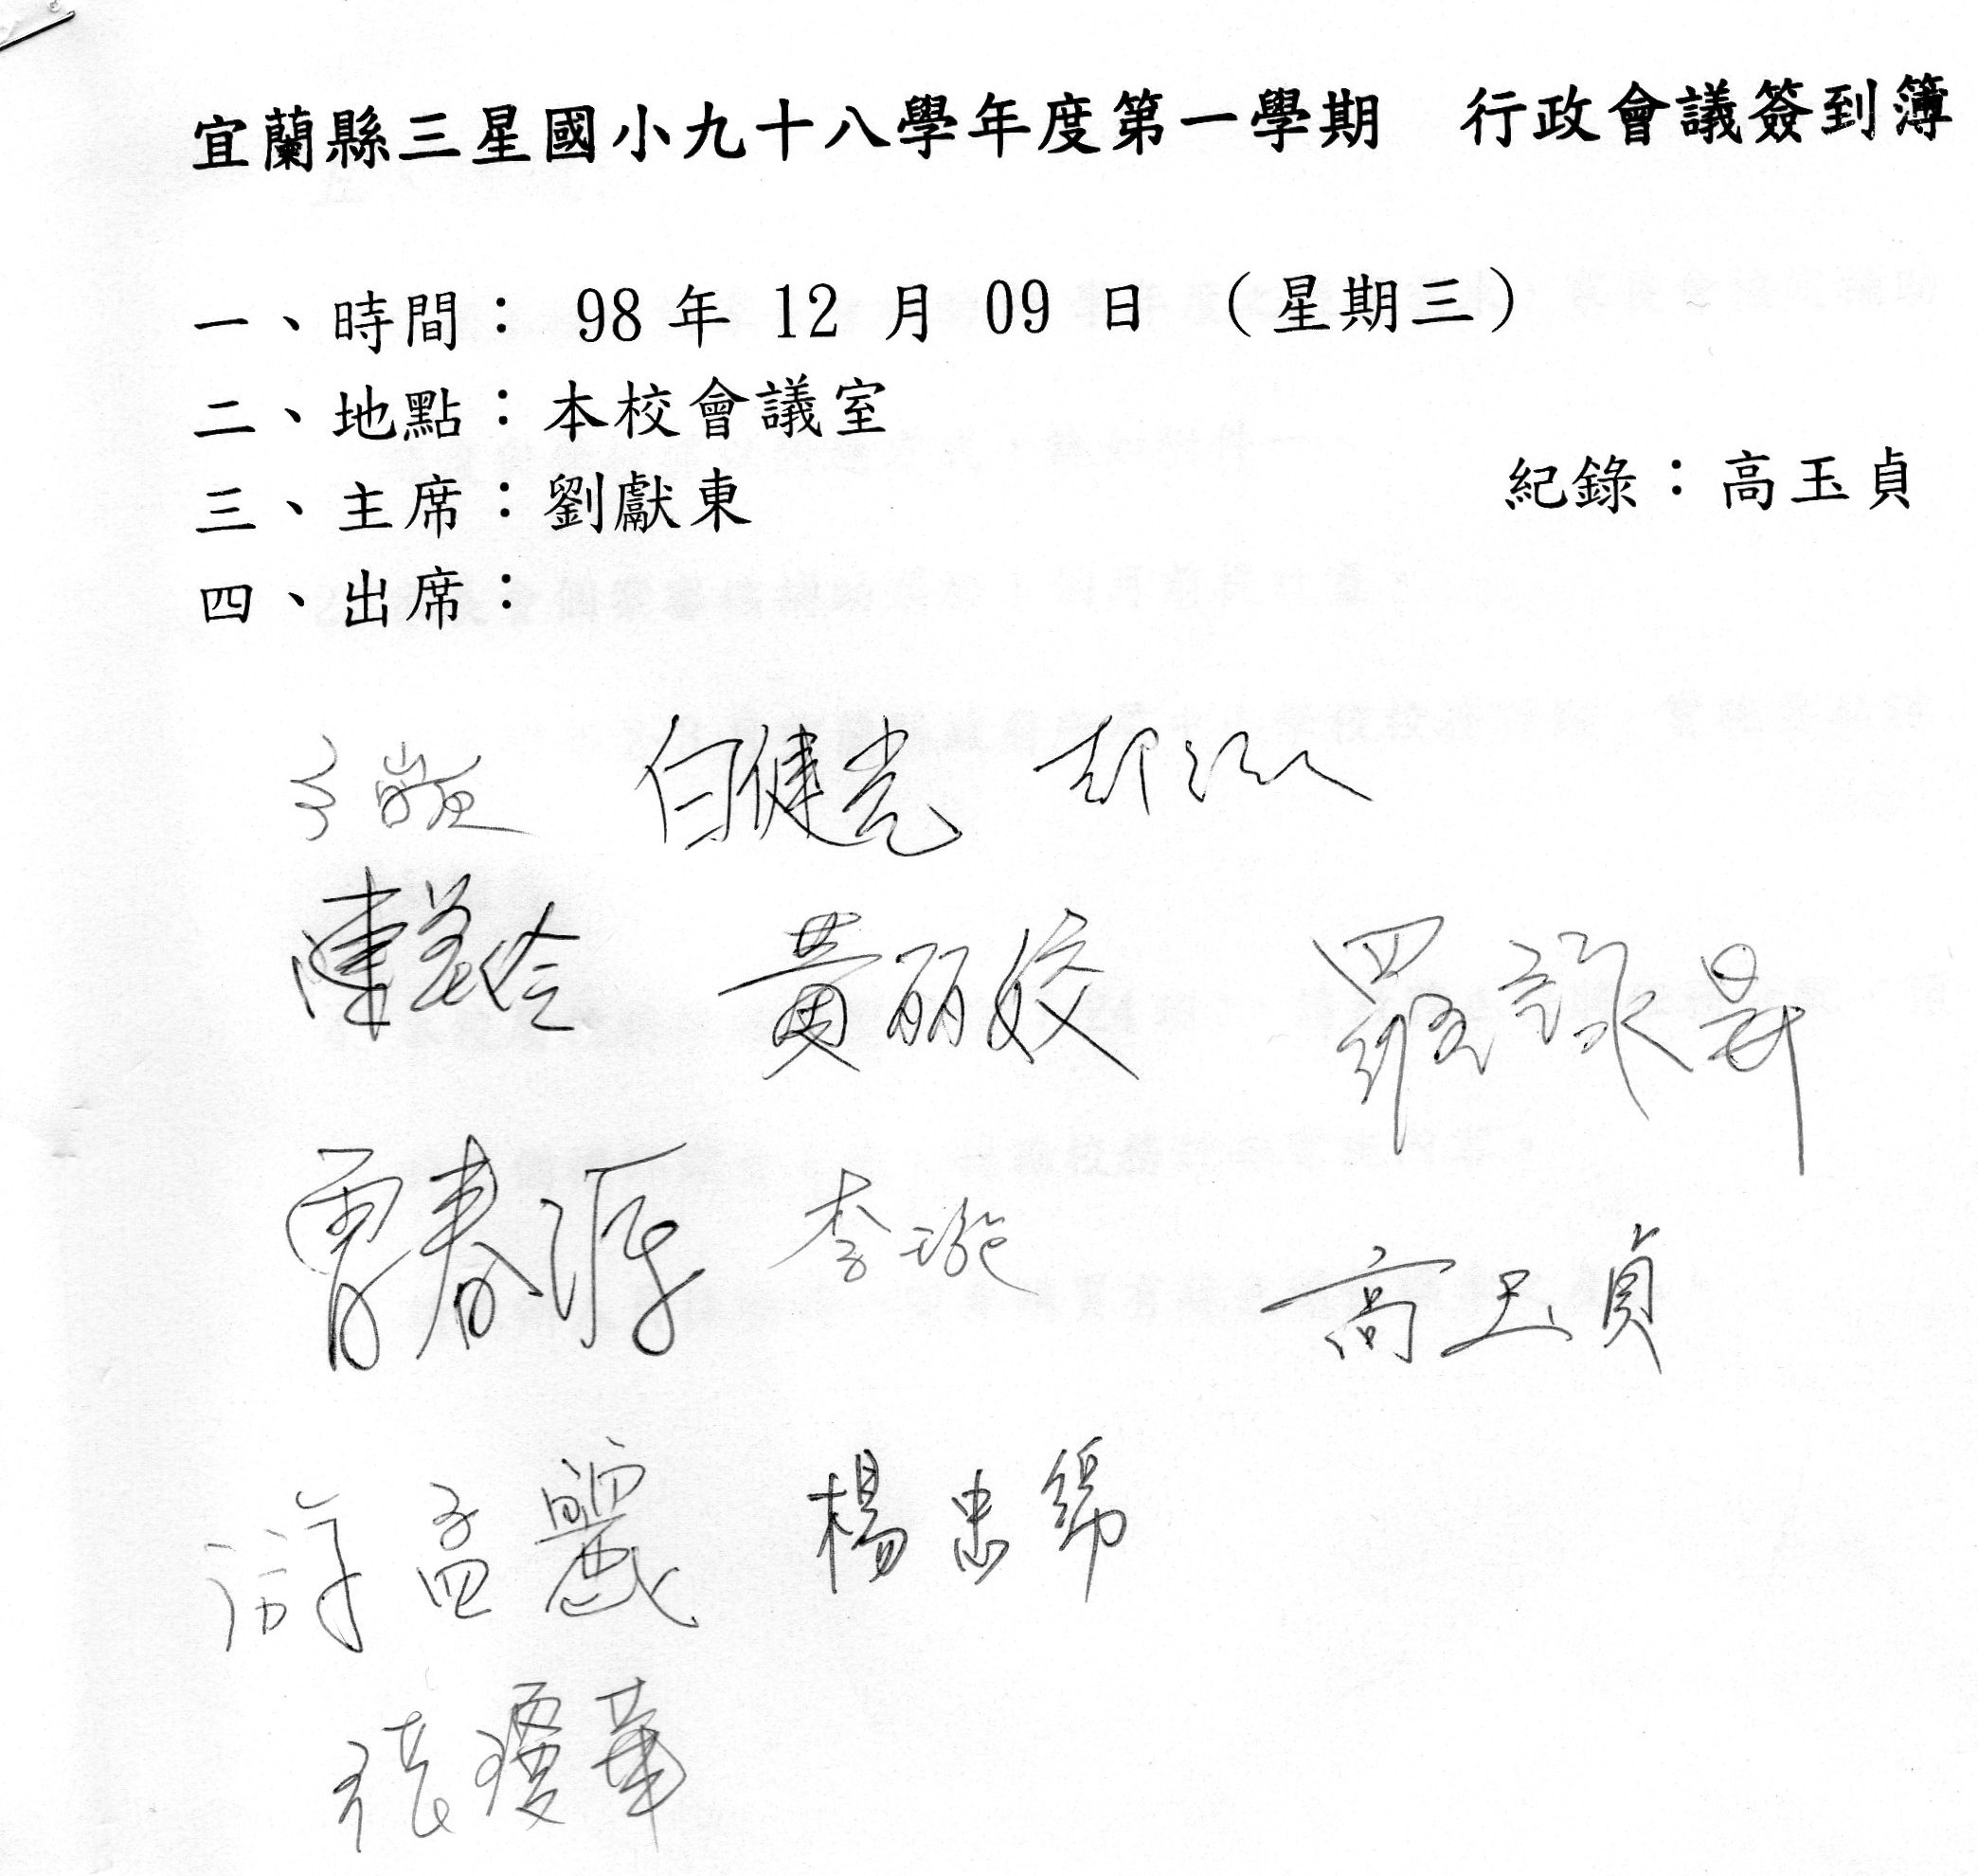 宜蘭縣三星國小九十八學年度第一學期 行政會議簽到簿
一、時間： 98 年 12 月 09 日 （星期三）
二、地點：本校會議室
三、主席：劉獻東 紀錄：高玉貞
四、出席：
白健光
陳美伶 黃丽姣 羅詠
春源 李璇 高玉貞
游孟麗 楊忠錦
張瓊華